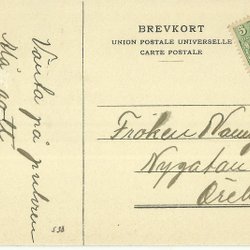 BREVKORT
UNION POSTALE UNIVERSELLE
CARTE POSTALE
5
Vänta på
Må gott
Fröken
Nygatan
538